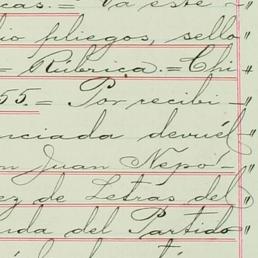 cas.= Va este
io pliegos, sello
= Rúbrica.= Chi
55.= Por recibi-
nciada devuél
n Juan Nepó-
ez de Letras del
nda del Partido